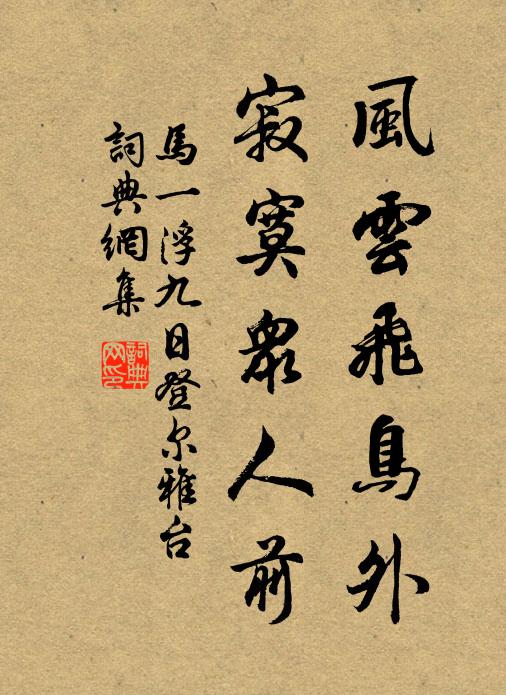 風雲飛鳥外
寂寞眾人前
馬一浮九日登尔雅台
詞典網集
詞典网印